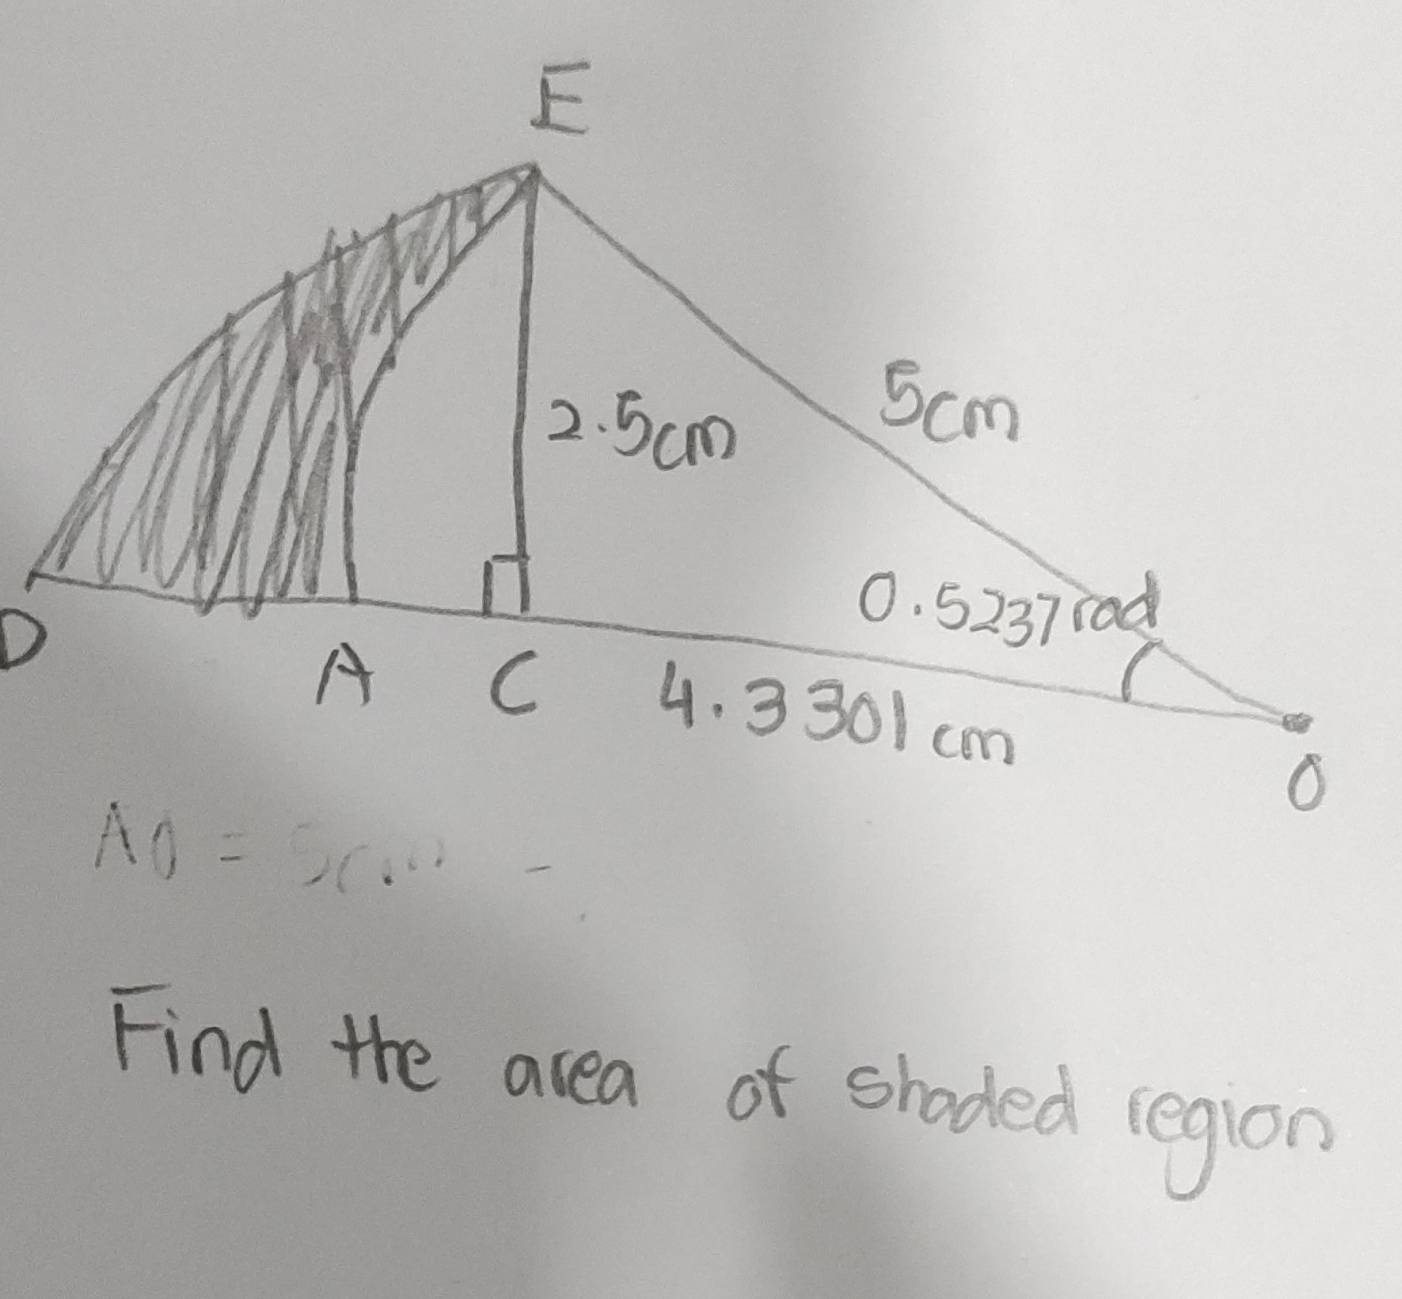 E
2.5cm
5cm
0.5237 rad
D
A
C
4.3301 cm
O
AO = 5cm
Find the area of shaded region